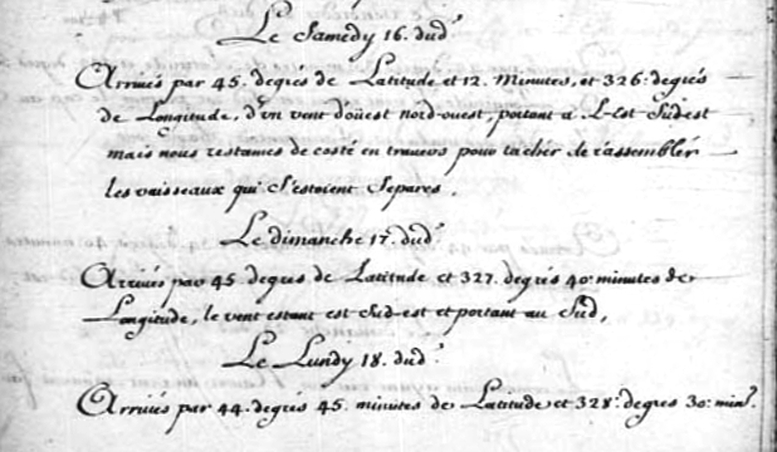 Le Samedy 16. dud.t
Arrivés par 45. degrés de Latitude et 12. Minutes, et 326: degrés
de Longitude, d'un vent d'oüest nord-ouest, portant a L-Est Sud-est
mais nous restames de costé en travers pour tacher de rassembler
les vaisseaux qui S'estoient Separes.
Le dimanche 17. dud.t
Arrivés par 45 degres de Latitude et 327. degrés 40 minutes de
Longitude, le vent estant est Sud-est et portant au Sud,
Le Lundy 18. dud.t
Arrivés par 44. degrés 45. minutes de Latitude et 328. degres 30: min.